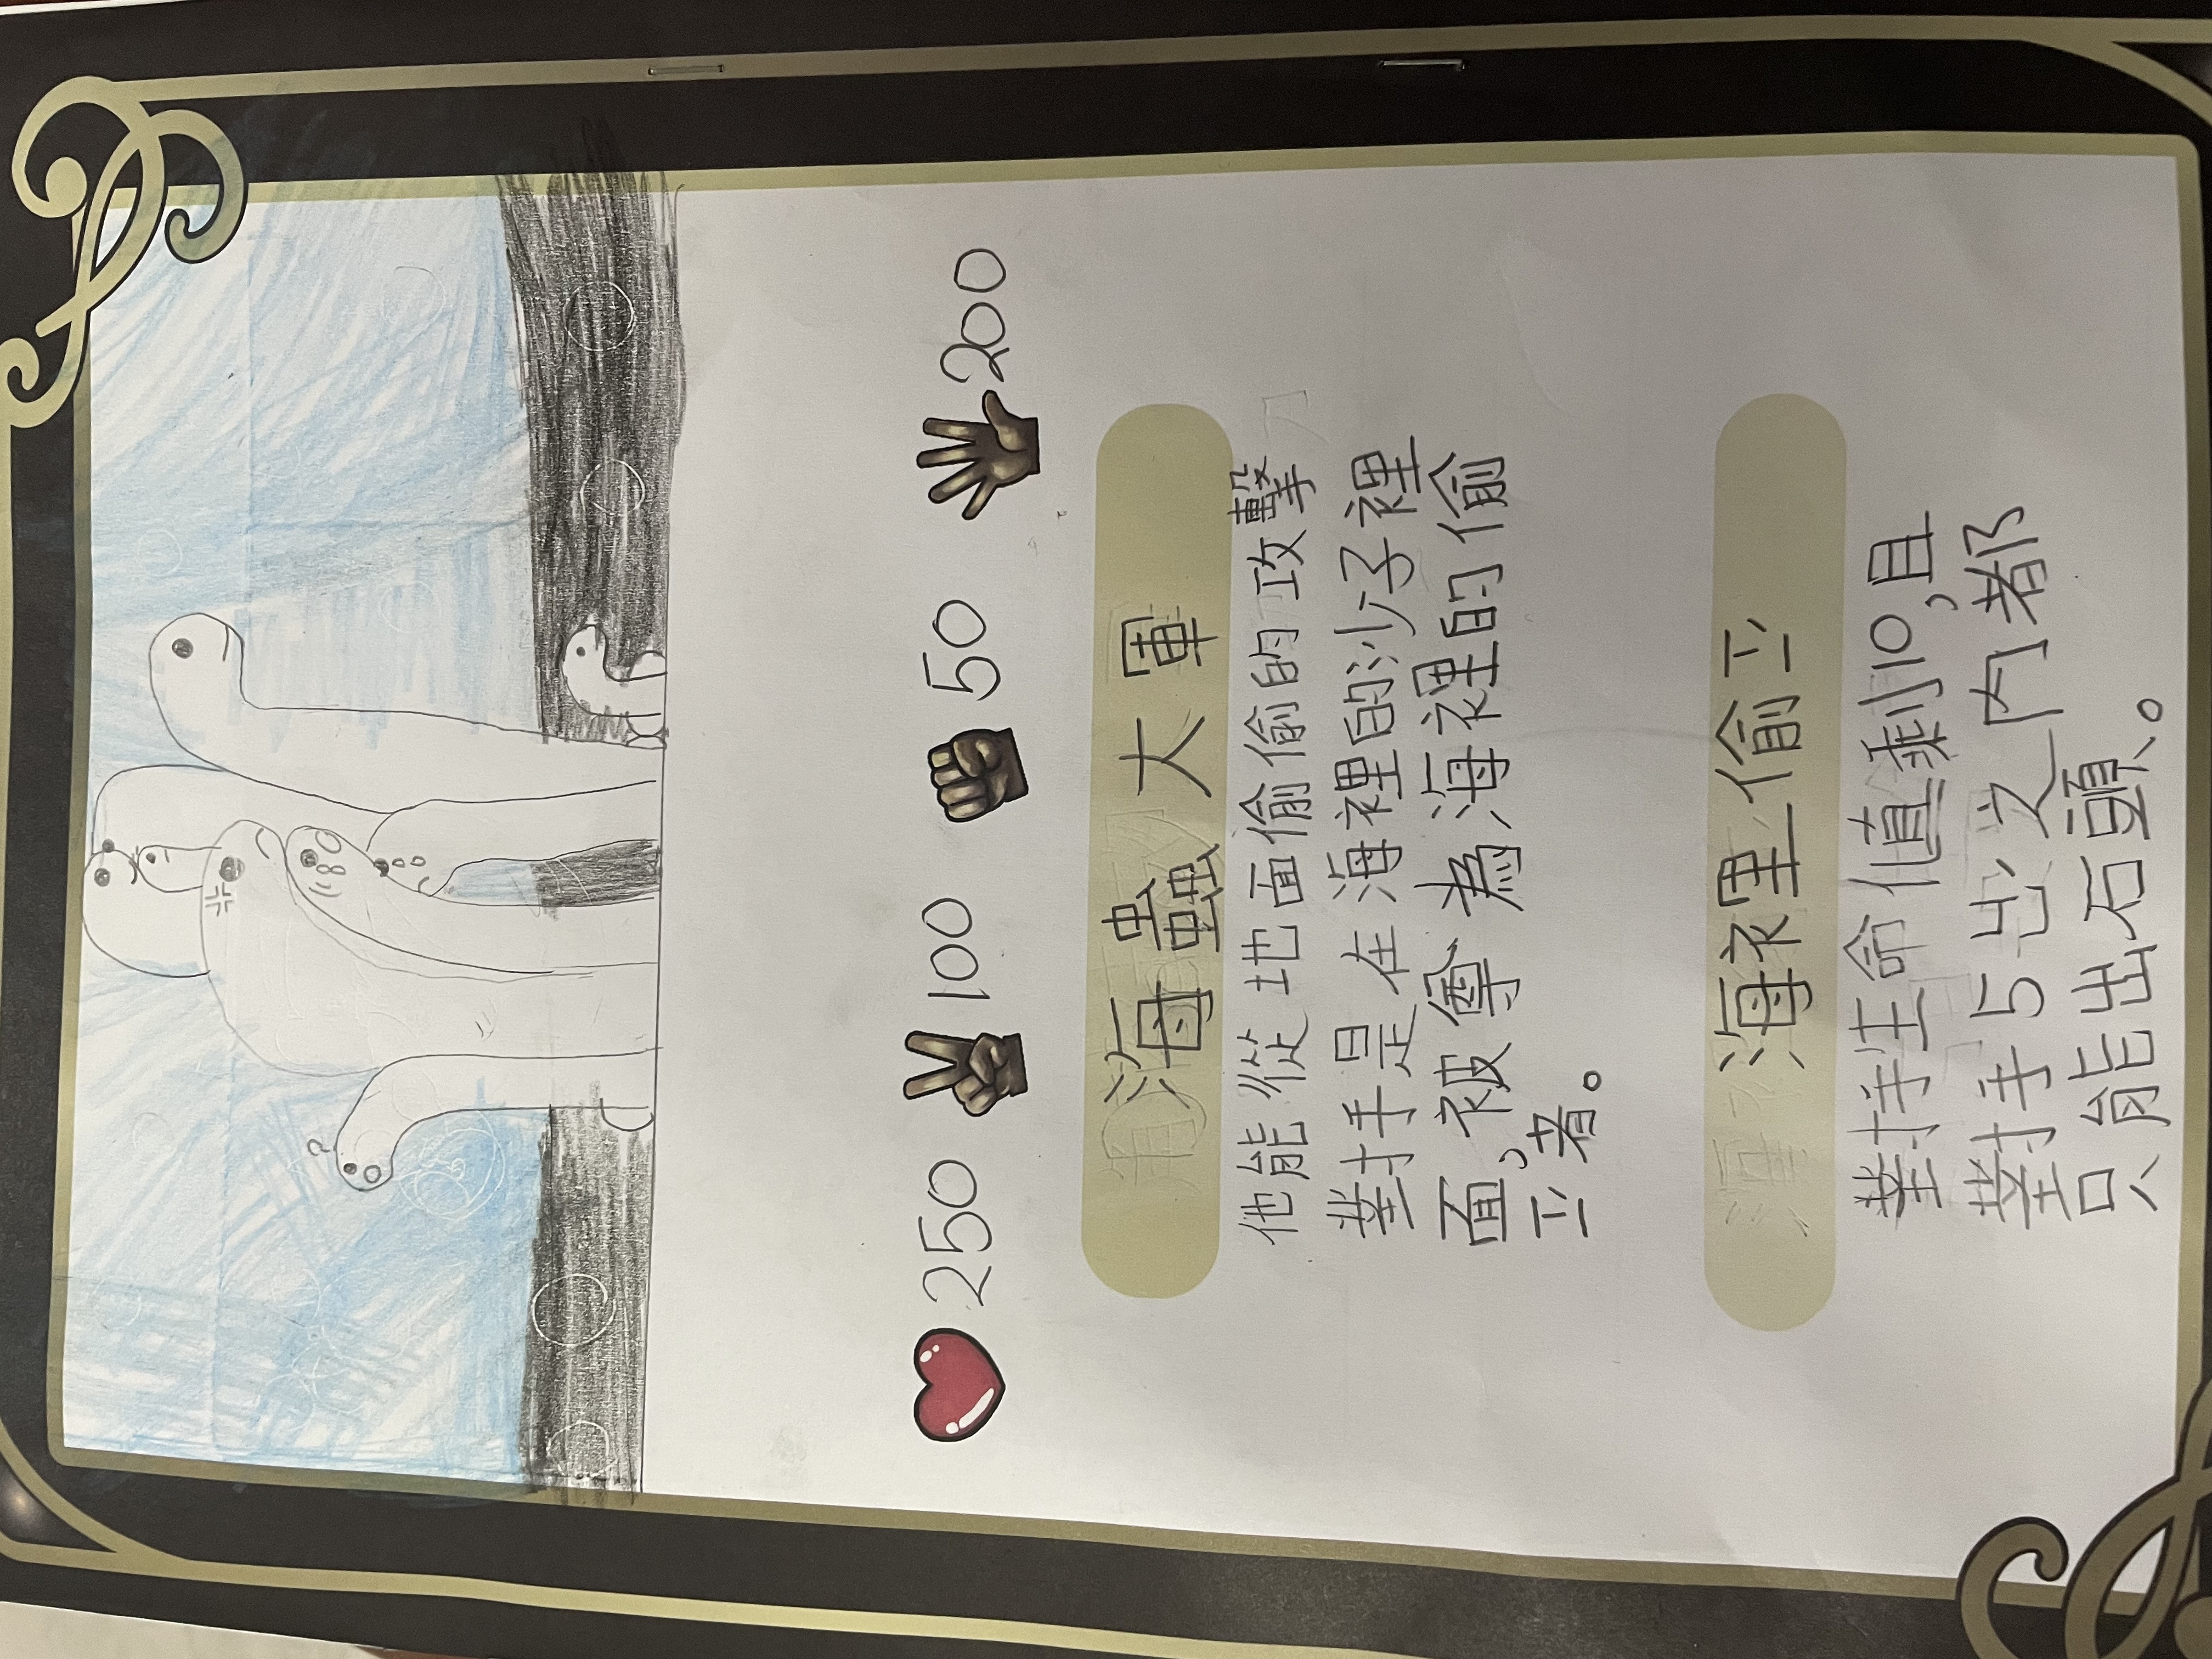 250 100 50 200
海蟲大軍
他能從地面偷偷的攻擊
對手是在海裡的沙子裡
面,被尊為海裡的偷
立者。
海裡偷立
對手生命值剩10,且
對手5出以內都
只能出石頭。